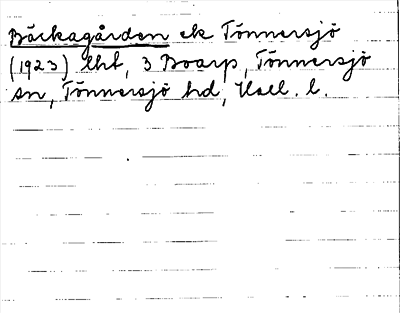 Bäckagården ek Tönnersjö
(1923) lht, 3 Boarp, Tönnersjö
sn, Tönnersjö hd, Hall. l.